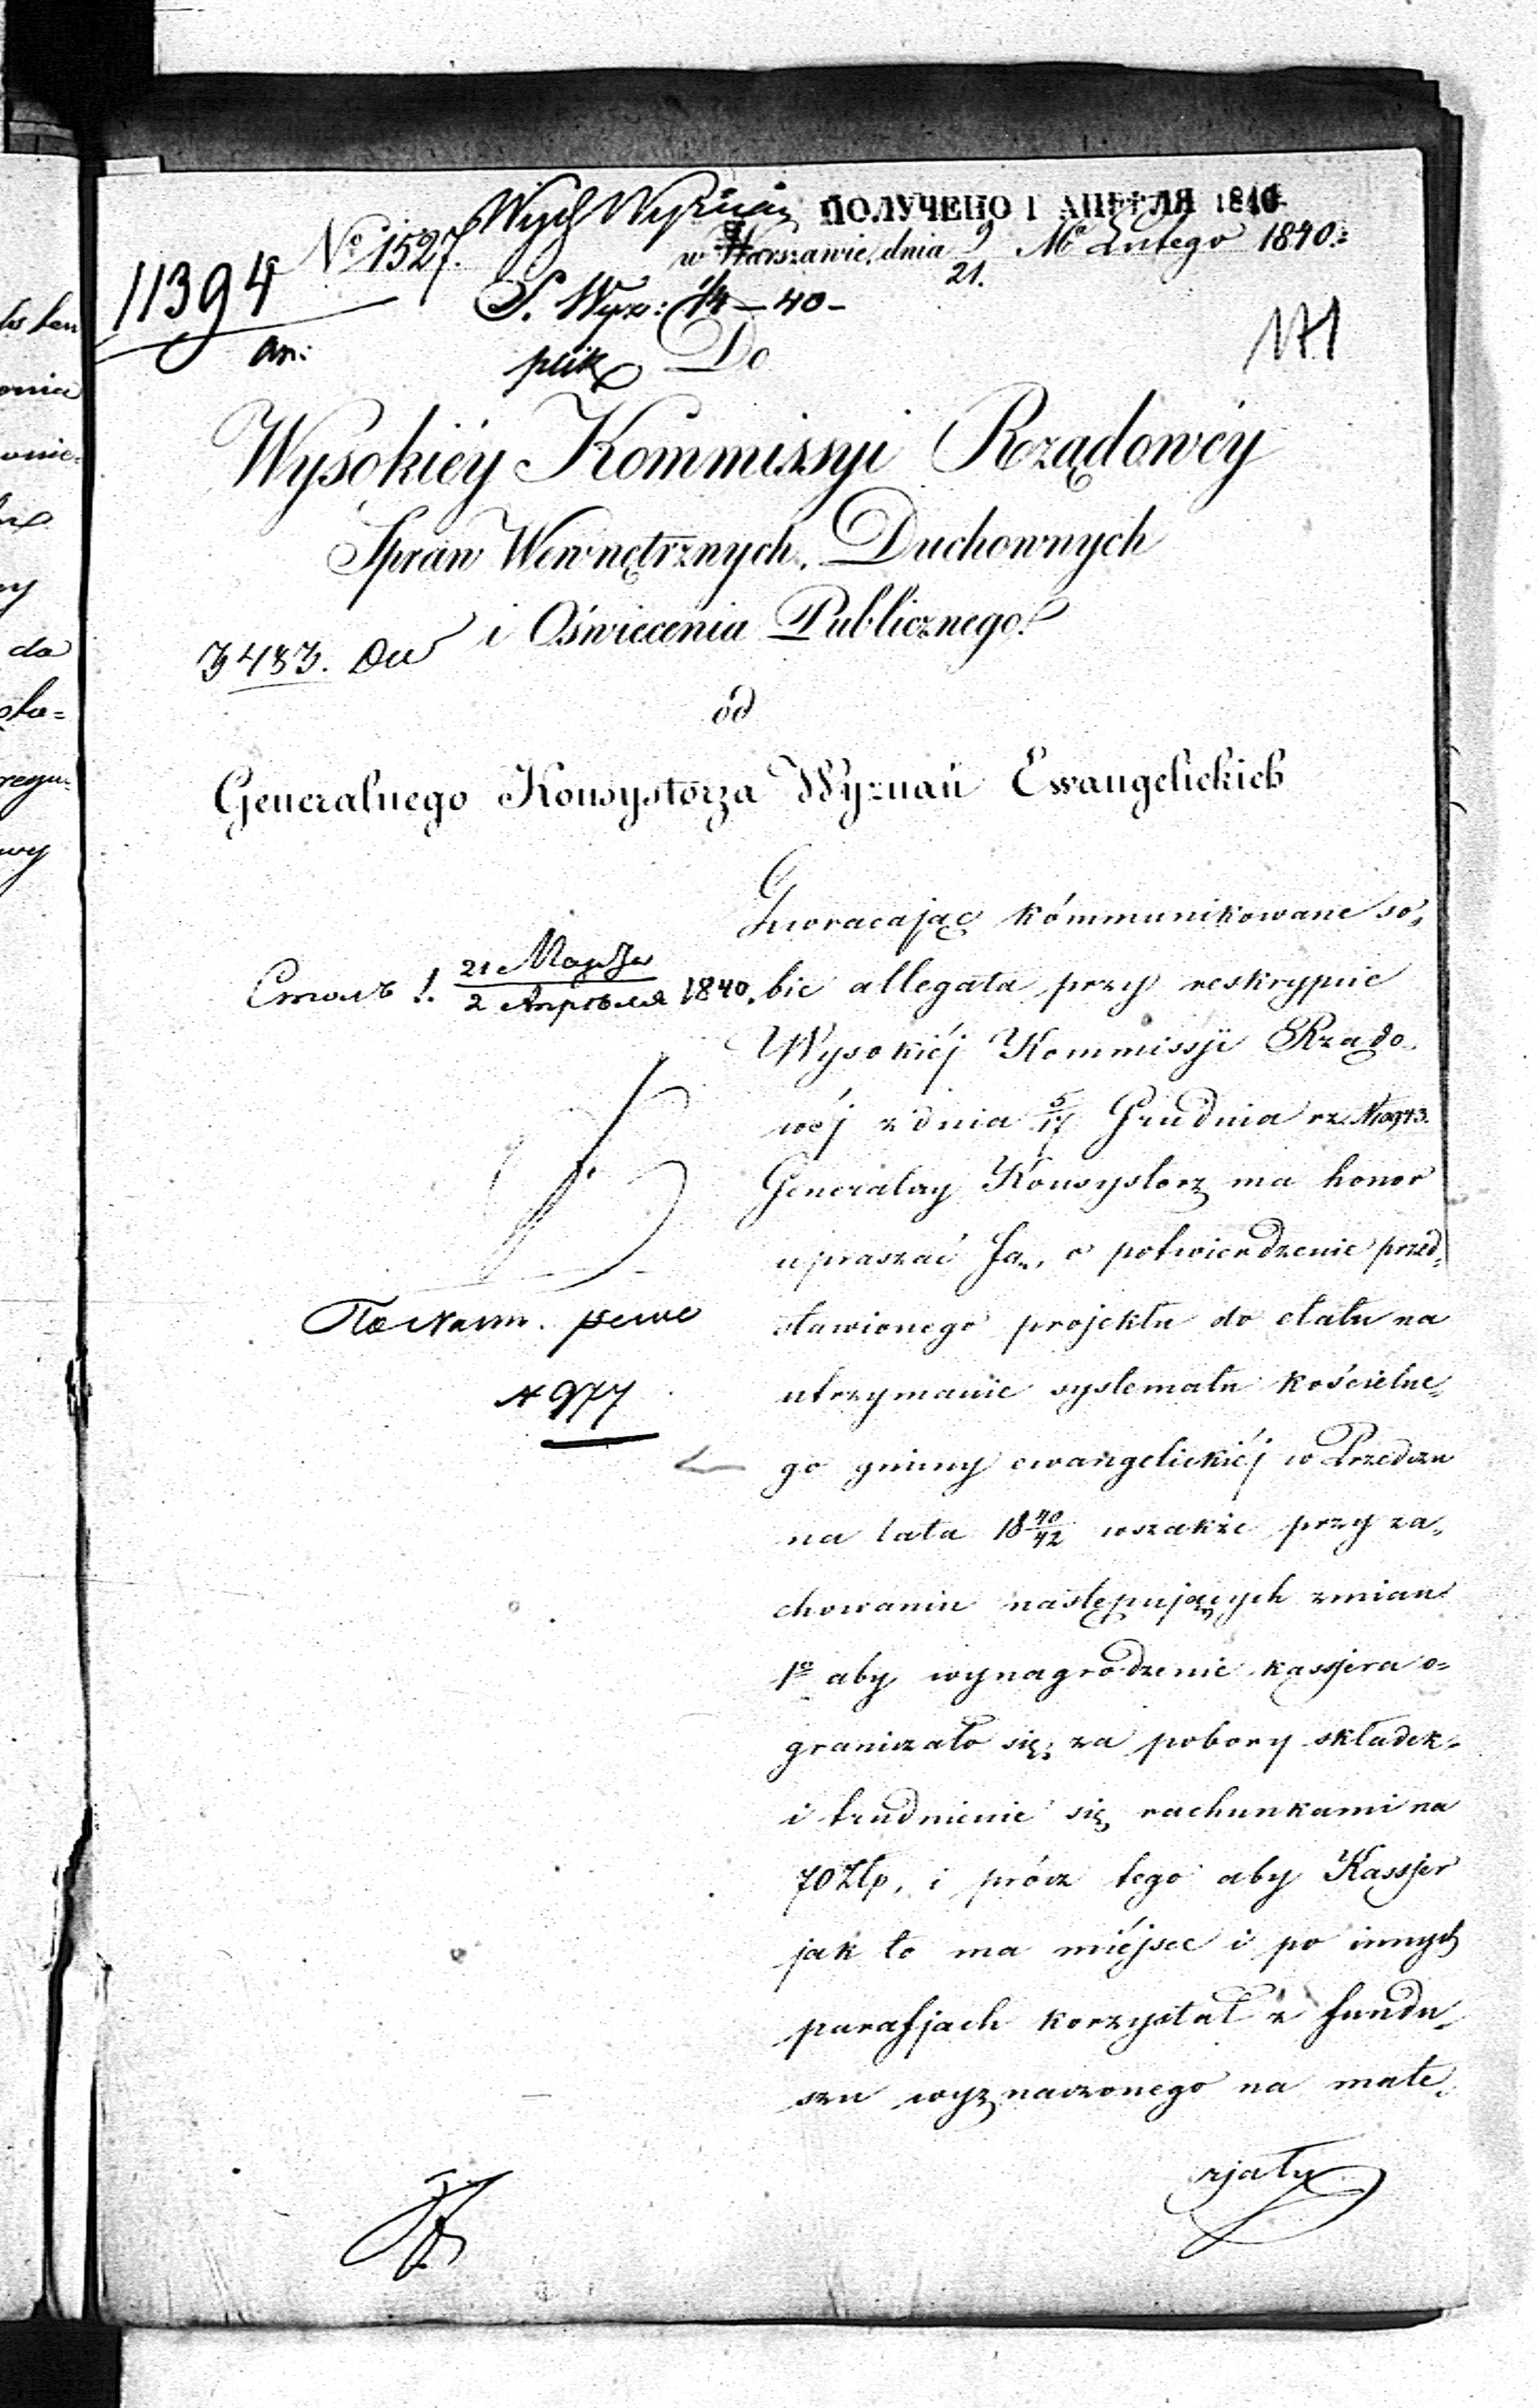 Wydz Wyznań ПОЛУЧЕНО 1 АПРѢЛЯ 1840
No 1527. w Warszawie, dnia 9/21. Ma Lutego 1840.
11394
S. Wyz: 14 – 40 –
171
plik Do
Wysokiéy Kommissyi Rządowéy
Spraw Wewnętrznych, Duchownych
i Oświecenia Publicznego.
3483.
od
Generalnego Konsystorza Wyznań Ewangelickich
Zwracając kómmunikowane so„
bie allegata przy reskrypcie
Wysokiéj Kommissji Rządo„
wéj z dnia 5/17 Grudnia rz.
Generalny Konsystorz ma honor
upraszać Ją, o potwierdzenie przed„
stawionego projektu do etatu na
utrzymanie systematu kościelne„
go gminy ewangelickiéj w Przedczu
na lata 18 40/42 wszakże przy za„
chowaniu następujących zmian
1o aby wynagrodzenie kassjera o=
graniczało się za pobory składek
i trudnienie się rachunkami na
70 Złp, i prócz tego aby Kassjer
jak to ma miéjsce i po innych
parafjach korzystał z fundu„
szu wyznaczonego na mate„
rjały
21 Марта
/ 2 Апрѣля 1840.
977